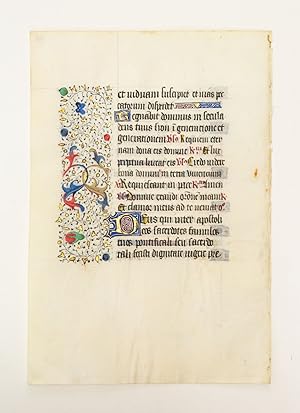 et viduam suscipiet et vias pec
catorum disperdet
Regnabit dominus in secula
deus tuus sion in generacione et
generacionem Requiem eter
nam dona eis domine Et lux
perpetua luceat eis Credo videre
bona domini in terra viventium
Requiescant in pace Amen
Domine exaudi
et clamor meus ad te veniat
Deus qui inter apostoli
cos sacerdotes famulos
tuos pontificali seu sacerdo
tali fecisti dignitate vigere pre